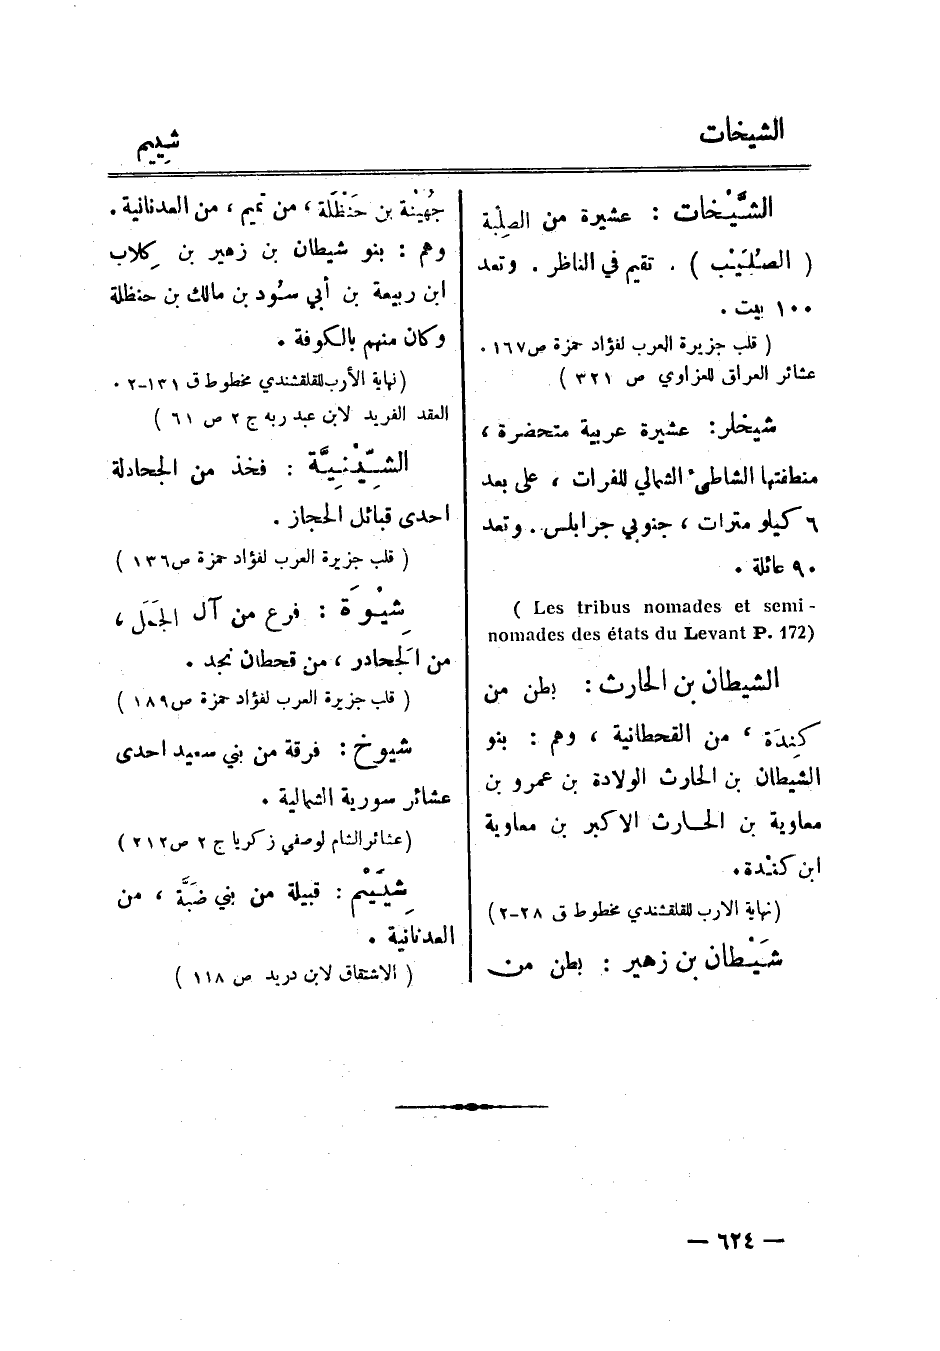 الشيخات
شِيِيم
الشَّيْخات : عشيرة من الصلِبة
( الصُلَيَب ) . تقيم في الناظر . وتعد
١٠٠ بيت .
( قلب جزيرة العرب لفؤاد حمزة ص١٦٧ .
عشائر العراق للعزاوي ص ٣٢١ )
شيخلر: عشيرة عربية متحضرة ،
منطقتها الشاطىء الشمالي للفرات ، على بعد
٦ كيلو مترات ، جنوبي جرابلس . وتعد
٩٠ عائلة .
( Les tribus nomades et semi-
nomades des états du Levant P. 172)
الشيطان بن الحارث : بطن من
كِنِدَة ، من القحطانية ، وهم : بنو
الشيطان بن الحارث الولادة بن عمرو بن
معاوية بن الحارث الاكبر بن معاوية
ابن كنْدة.
(نهاية الارب للقلقشندي مخطوط ق ٢٨-٢)
شَيْطان بن زهير : بطن من
جُهيْنة بن حَنْظَلَة ، من تميم ، من العدنانية .
وهم : بنو شيطان بن زهير بن كِلاب
ابن ربيعة بن أبي سُود بن مالك بن حنظلة
وكان منهم بالكوفة .
(نهاية الأرب للقلقشندي مخطوط ق ١٣١-٢ .
العقد الفريد لابن عبد ربه ج ٢ ص ٦١ )
الشِّيْنِيَّة : فخذ من الجحادلة
احدى قبائل الحجاز .
( قلب جزيرة العرب لفؤاد حمزة ص١٣٦ )
شِيْوَة : فرع من آل الجَمَل ،
من الجحادر ، من قحطان نجد .
( قلب جزيرة العرب لفؤاد حمزة ص١٨٩ )
شيوخ : فرقة من بني سعيد احدى
عشائر سورية الشمالية .
(عشائر الشام لوصفي زكريا ج ٢ ص٢١٢ )
شِيَيْم : قبيلة من بني ضَبَّة ، من
العدنانية .
( الاشتقاق لابن دريد ص ١١٨ )
— ٦٢٤ —